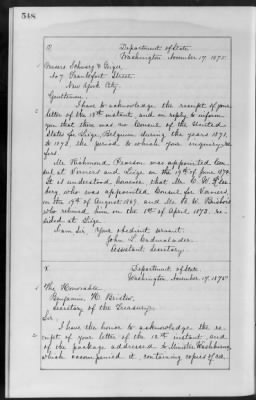 548
Department of State
Washington November 17, 1875.
Messrs Schwarz &
No 7 Frankfort Street,
New York City.
Gentlemen:
I have to acknowledge the receipt of your
letter of the 13th instant, and in reply to inform
you that there was no Consul of the United
States for Liege, Belgium during the years 1871,
to 1873, the period to which your inquiry re-
fers.
Mr. Richmond Pearson was appointed Con-
sul at Verviers and Liege on the 19th of June 1874.
It is understood, however, that Mr. C. H.
berg who was appointed Consul for Verviers,
on the 9th of August 1869 and Mr. B. W.
who relieved him on the 1st of April 1873 re-
sided at Liege.
I am Sir, Your obedient servant.
John L. Cadwalader,
Assistant Secretary.
Department of State
Washington, November 17, 1875.
The Honorable
Benjamin H. Bristow,
Secretary of the Treasury.
Sir
I have the honor to acknowledge the re-
ceipt of your letter of the 12th instant and
of the package addressed to Minister Washburne,
which accompanied it, containing copies of